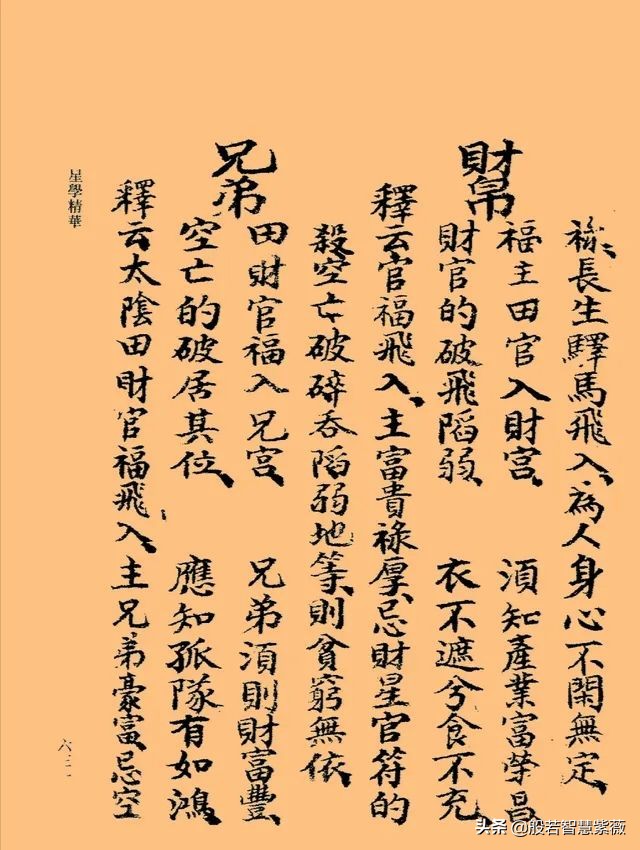 祿、長生驛馬飛入、為人身心不閑無定、
財帛
福主田官入財宮、 須知產業富榮昌
財官的破飛陷弱、 衣不遮兮食不充
釋云官福飛入、主富貴祿厚、忌財星官符的
殺空亡破碎吞陷弱地等、則貧窮無依
兄弟
田財官福入兄宮 兄弟須則財富豐
空亡的破居其位、 應知孤隊有如鴻
釋云太陰田財官福飛入、主兄弟豪富忌空
星學精華
头条 @般若智慧紫薇